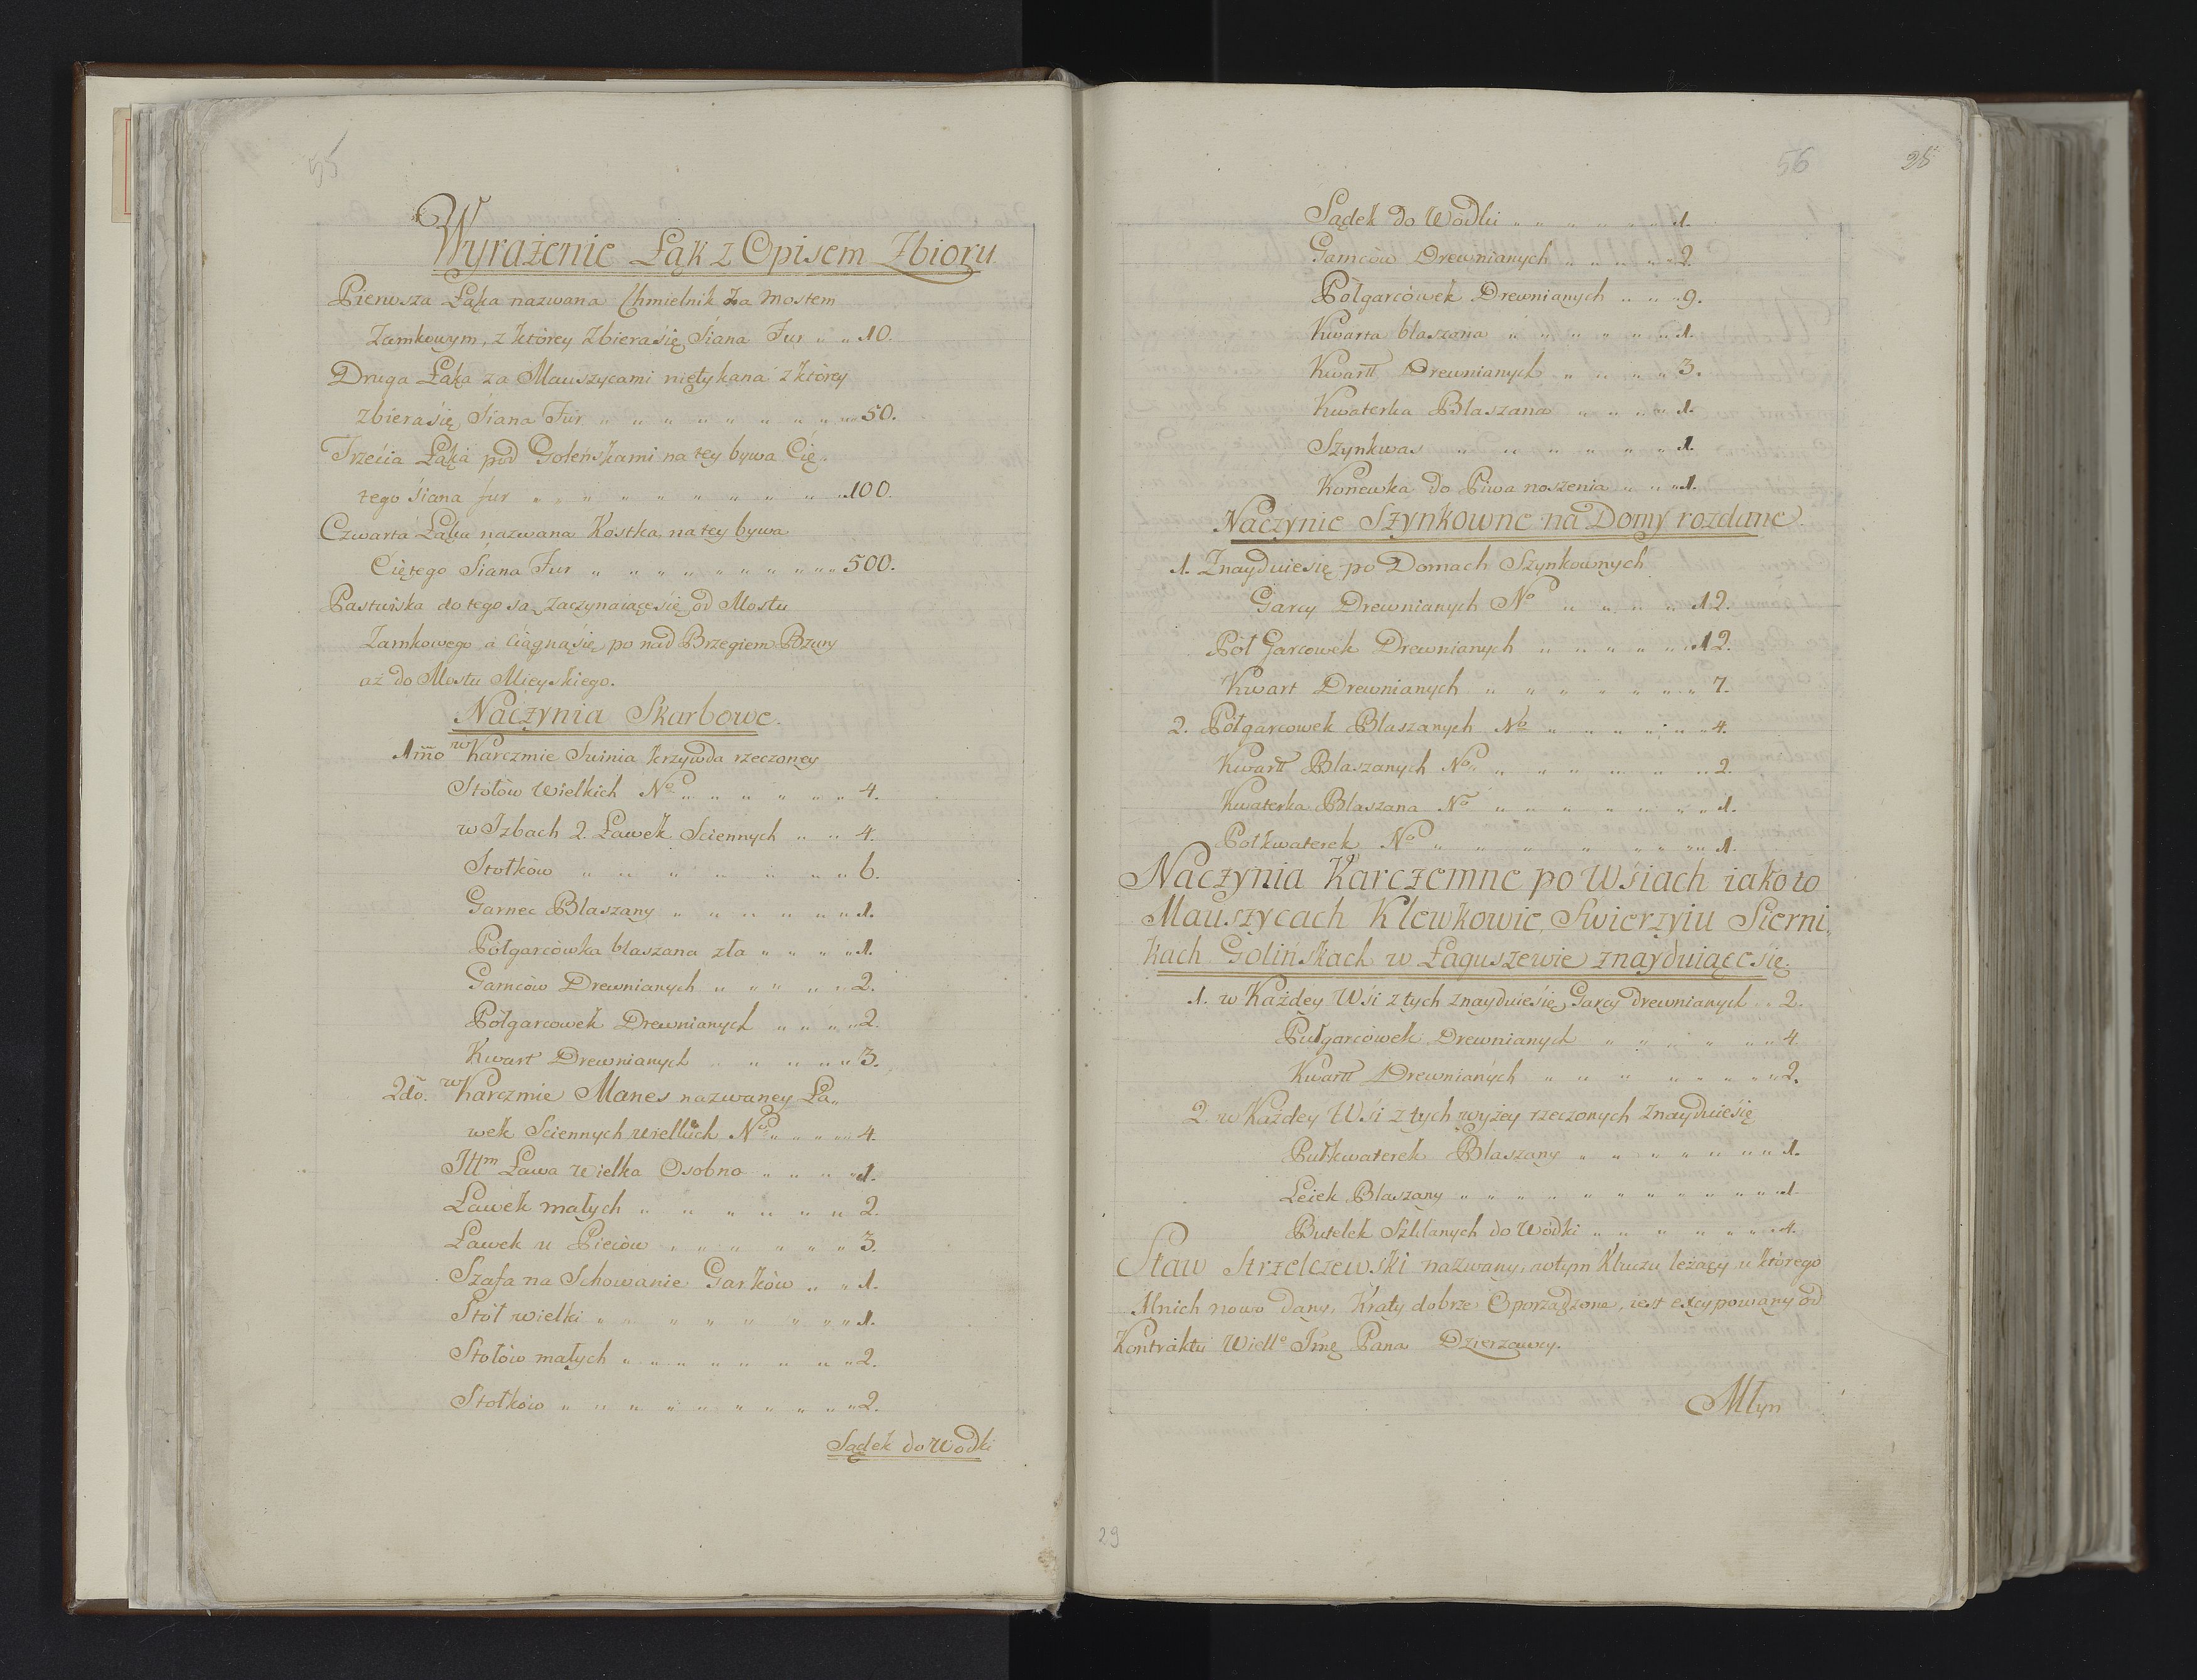 55
Wyrażenie Łąk z Opisem Zbioru
Pierwsza Łąka nazwana Chmielnik Za Mostem
Zamkowym, z którey Zbiera się Siana Fur „ „ 10.
Druga Łąka za Mauszycami nietykana z którey
zbiera się Siana Fur „ „ „ „ „ „ „ „ 50.
Trzećia Łąka pod Goleńskami na tey bywa Cię„
tego śiana fur „ „ „ „ „ „ „ „ „ 100.
Czwarta Łąka nazwana Kostka, na tey bywa
Ciętego Siana Fur „ „ „ „ „ „ „ „ 500.
Pastwiska do tego są zaczynaiące się od Mostu
Zamkowego a ciągną się po nad Brzegiem Bzury
aż do Mostu Mieyskiego.
Naczynia Skarbowe.
1mo w Karczmie Swinia krzywda rzeczoney
Stołów Wielkich No „ „ „ „ „ „ 4.
w Izbach 2. Ławek Sciennych „ „ 4.
Stołków „ „ „ „ „ „ „ 6.
Garnec Blaszany „ „ „ „ „ „ 1.
Półgarcówka blaszana zła „ „ „ „ 1.
Garnców Drewnianych „ „ „ „ „ 2.
Półgarcowek Drewnianych „ „ „ „ 2.
Kwart Drewnianych „ „ „ „ „ 3.
2do. w Karczmie Manes nazwaney Ła„
wek Sciennych wielkich No „ „ „ „ 4.
Ittm Ława wielka Osobno „ „ „ „ 1.
Ławek małych „ „ „ „ „ „ 2.
Ławek u Pieców „ „ „ „ „ „ 3.
Szafa na Schowanie Garków „ „ 1.
Stół wielki „ „ „ „ „ „ „ „ 1.
Stołów małych „ „ „ „ „ „ „ „ 2.
Stołków „ „ „ „ „ „ „ „ „ 2.
Sądek do Wodki
56
28
Sądek do Wódki „ „ „ „ „ „ 1.
Garnców Drewnianych „ „ „ „ „ 2.
Półgarcówek Drewnianych „ „ „ 9.
Kwarta blaszana „ „ „ „ „ „ 1.
Kwartt Drewnianych „ „ „ „ 3.
Kwaterka Blaszana „ „ „ „ 1.
Szynkwas „ „ „ „ „ „ „ 1.
Konewka do Piwa noszenia „ „ „ 1.
Naczynie Szynkowne na Domy rozdane.
1. Znayduie się po Domach Szynkownych
Garcy Drewnianych No „ „ „ „ 12.
Pół Garcowek Drewnianych „ „ „ „ „ 12.
Kwart Drewnianych „ „ „ „ „ „ „ 7.
2. Półgarcowek Blaszanych No „ „ „ „ „ „ 4.
Kwartt Blaszanych No „ „ „ „ „ „ „ 2.
Kwaterka Blaszana No „ „ „ „ „ „ „ 1.
Półkwaterek No „ „ „ „ „ „ „ „ 1.
Naczynia Karczemne po Wśiach iako to
Mauszycach Klewkowie, Swierzyiu Sierni„
kach Golińskach w Łaguszewie znayduiące się.
1. w Każdey Wśi z tych znayduie się Garcy drewnianych „ „ 2.
Pułgarcówek Drewnianych „ „ „ „ „ „ 4.
Kwartt Drewnianych „ „ „ „ „ „ „ „ 2.
2. w Każdey Wśi z tych wyżey rzeczonych Znayduie się
Pułkwaterek Blaszany „ „ „ „ „ „ „ 1.
Leiek Blaszany „ „ „ „ „ „ „ „ „ „ „ 1.
Butelek Szklanych do Wódki „ „ „ „ „ „ 4.
Staw Strzelczewski nazwany, w tym Kluczu leżący u którego
Mnich nowo dany, Kraty dobrze Oporządzone, iest excypowany od
Kontraktu Wiello Jmę Pana Dzierzawcy.
Młyn
29